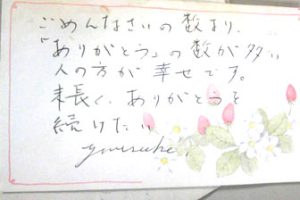 ごめんなさいの数より、
「ありがとう」の数が多い
人の方が幸せです。
末長く、ありがとうを
続けたい
yuusuke.